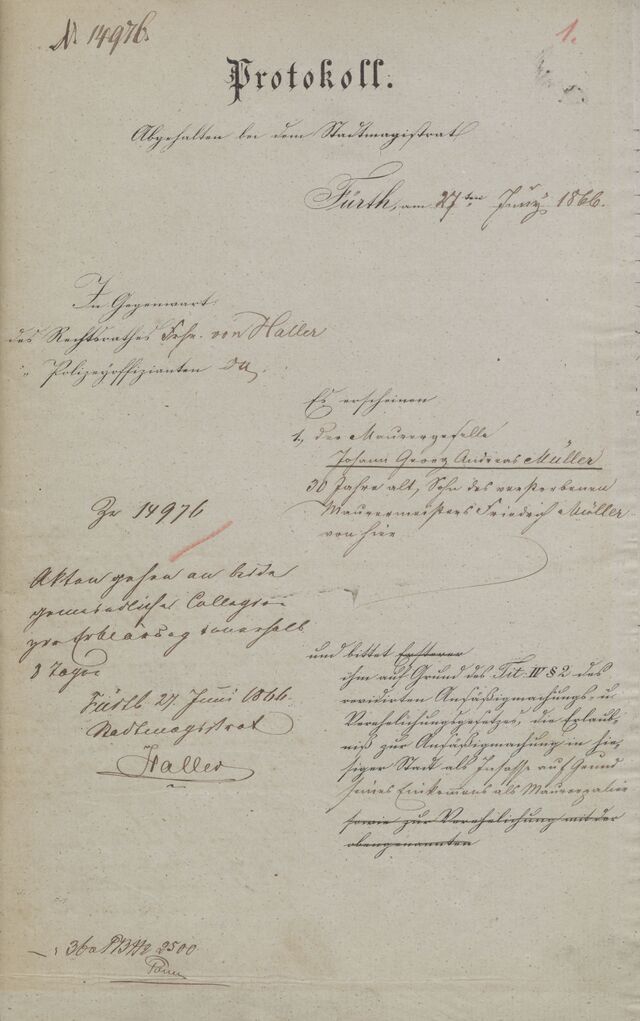 N. 14976.
1.
Protokoll.
Abgehalten bei dem Stadtmagistrat
Fürth, am 27ten Juny 1866.
In Gegenwart:
des Rechtsrathes Frhr. von Haller
" Polizeyoffizianten
Es erscheinen
1, der Maurergeselle
Johann Georg Andreas Müller
30 Jahre alt, Sohn des verstorbenen
Maurermeisters Friedrich Müller
von hier
Zr 14976
Akten gehen an beide
gemeindliche Collegien
zur Erklärung innerhalb
8 Tagen
Fürth 27. Juni 1866.
Stadtmagistrat
Haller
und bittet Ersterer
ihm auf Grund des Tit. IV § 2 des
revidirten Ansäßigmachungs- u.
Verehelichungsgesetzes, die Erlaub-
niß zur Ansäßigmachung in hie-
siger Stadt als Insasse auf Grund
seines Einkommens als Maurerpalier
sowie zur Verehelichung mit der
obengenannten
2500